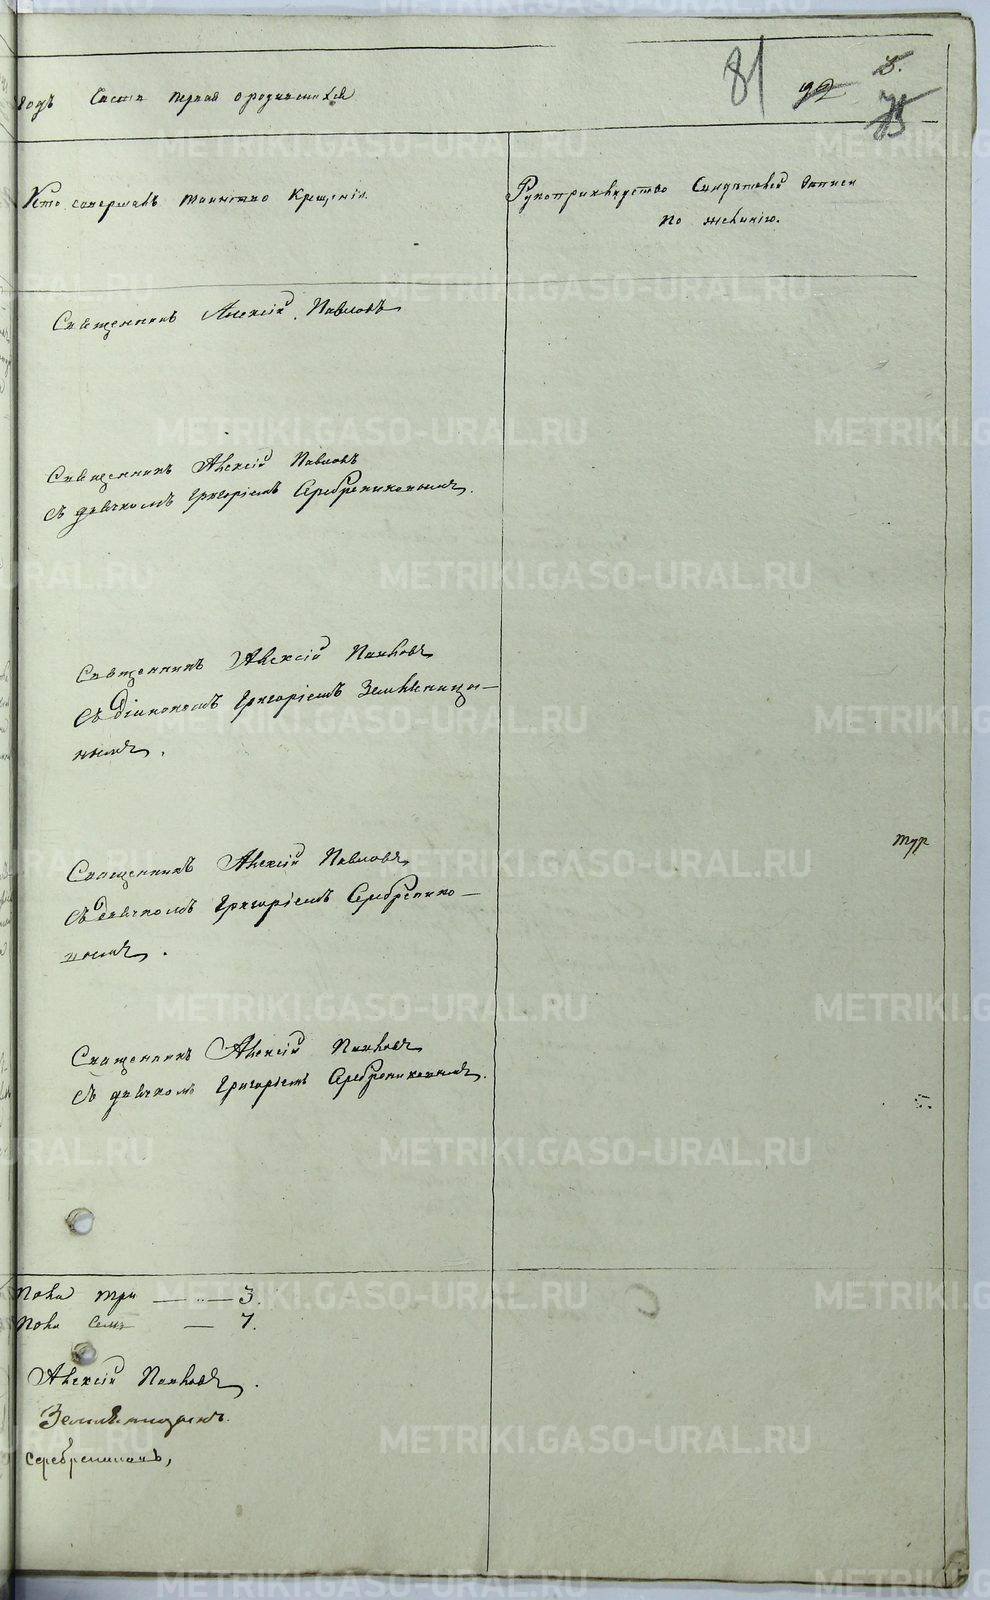 81 92 75
годъ Часть первая о родившихся
Кто совершалъ таинство Крещенія.
Рукоприкладство Свидѣтелей Записи
по желанію.
Священникъ Алексій Павловъ
Священникъ Алексій Павловъ
съ дьячкомъ Григоріемъ Серебрениковымъ.
Священникъ Алексій Павловъ
Съ Діакономъ Григоріемъ
нымъ.
тур
Священникъ Алексій Павловъ
Съ дьячкомъ Григоріемъ Серебренико-
вымъ.
Священникъ Алексій Павловъ
Съ дьячкомъ Григоріемъ Серебрениковымъ.
пола три — 3.
пола семь — 7.
Алексій Павловъ.
Серебрениковъ,
METRIKI.GASO-URAL.RU